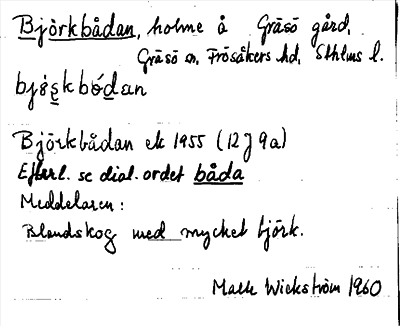 Björkbådan, holme å Gräsö gård,
Gräsö sn, Frösåkers hd, Sthlms l.
Björkbådan ek 1955 (12J 9a)
Efterl. se dial. ordet båda
Meddelaren:
Blandskog med mycket björk.
Wickström 1960